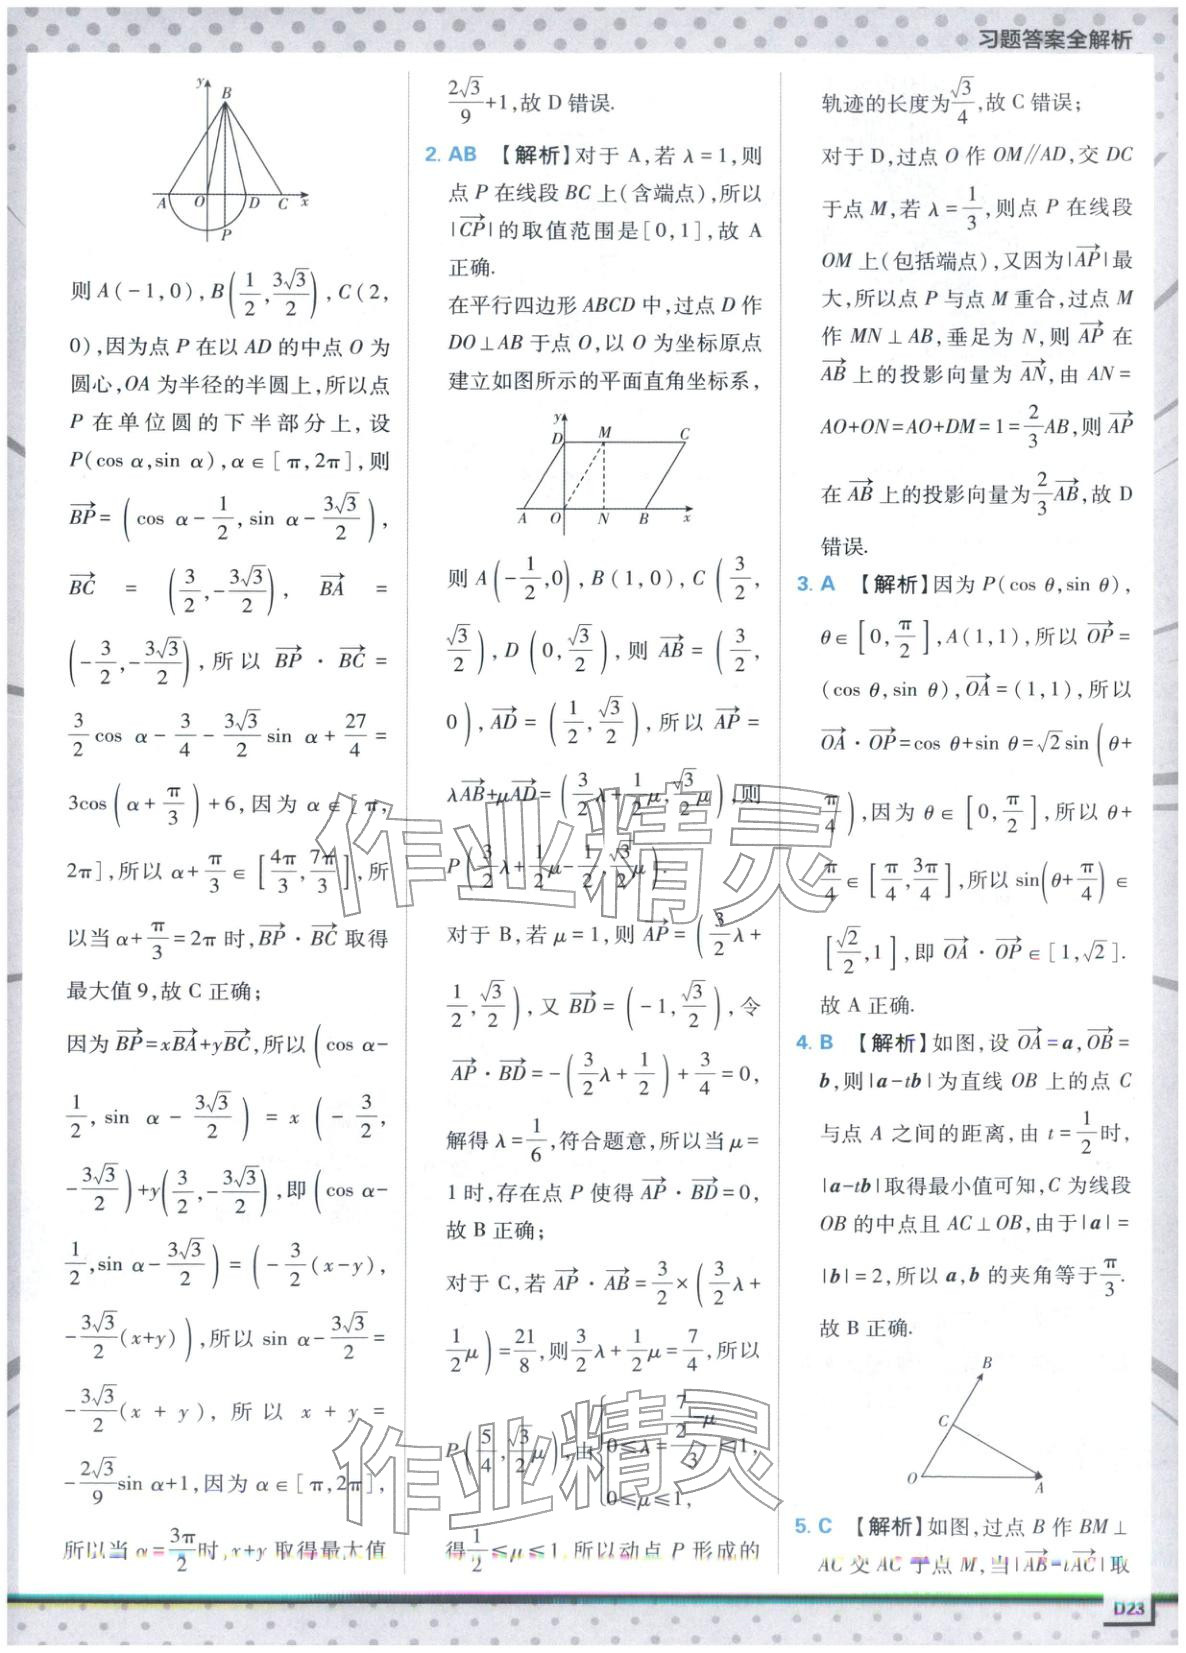 习题答案全解析
y B
A O D C x
P
则 A(-1,0),B(1/2,3√3/2),C(2,
0),因为点 P 在以 AD 的中点 O 为
圆心,OA 为半径的半圆上,所以点
P 在单位圆的下半部分上,设
P(cos α,sin α),α∈[π,2π],则
BP→=(cos α-1/2,sin α-3√3/2),
BC→ = (3/2,-3√3/2), BA→ =
(-3/2,-3√3/2),所以 BP→·BC→=
3/2 cos α-3/4-3√3/2 sin α+27/4=
3cos(α+π/3)+6,因为 α∈[π,
2π],所以 α+π/3∈[4π/3,7π/3],所
以当 α+π/3=2π 时,BP→·BC→取得
最大值 9,故 C 正确;
因为BP→=xBA→+yBC→,所以(cos α-
1/2,sin α-3√3/2)=x(-3/2,
-3√3/2)+y(3/2,-3√3/2),即(cos α-
1/2,sin α-3√3/2)=(-3/2(x-y),
-3√3/2(x+y)),所以 sin α-3√3/2=
-3√3/2(x+y),所以 x+y=
-2√3/9 sin α+1,因为 α∈[π,2π],
所以当 α=3π/2时,x+y 取得最大值
2√3/9+1,故 D 错误.
2. AB 【解析】对于 A,若 λ=1,则
点 P 在线段 BC 上(含端点),所以
|CP→|的取值范围是[0,1],故 A
正确.
在平行四边形 ABCD 中,过点 D 作
DO⊥AB 于点 O,以 O 为坐标原点
建立如图所示的平面直角坐标系,
y
D M C
A O N B x
则 A(-1/2,0),B(1,0),C(3/2,
√3/2),D(0,√3/2),则 AB→=(3/2,
0),AD→=(1/2,√3/2),所以 AP→=
λAB→+μAD→=(3/2λ+1/2μ,√3/2μ),则
P(3/2λ+1/2μ-1/2,√3/2μ).
对于 B,若 μ=1,则 AP→=(3/2λ+
1/2,√3/2),又 BD→=(-1,√3/2),令
AP→·BD→=-(3/2λ+1/2)+3/4=0,
解得 λ=1/6,符合题意,所以当 μ=
1 时,存在点 P 使得 AP→·BD→=0,
故 B 正确;
对于 C,若 AP→·AB→=3/2×(3/2λ+
1/2μ)=21/8,则3/2λ+1/2μ=7/4,所以
P(5/4,√3/2μ),由{0≤λ=(7/2-μ)/3≤1,
0≤μ≤1,
得1/2≤μ≤1,所以动点 P 形成的
轨迹的长度为√3/4,故 C 错误;
对于 D,过点 O 作 OM∥AD,交 DC
于点 M,若 λ=1/3,则点 P 在线段
OM 上(包括端点),又因为|AP→|最
大,所以点 P 与点 M 重合,过点 M
作 MN⊥AB,垂足为 N,则 AP→ 在
AB→ 上的投影向量为 AN→,由 AN=
AO+ON=AO+DM=1=2/3AB,则 AP→
在 AB→ 上的投影向量为2/3AB→,故 D
错误.
3. A 【解析】因为 P(cos θ,sin θ),
θ∈[0,π/2],A(1,1),所以 OP→=
(cos θ,sin θ),OA→=(1,1),所以
OA→·OP→=cos θ+sin θ=√2sin(θ+
π/4),因为 θ∈[0,π/2],所以 θ+
π/4∈[π/4,3π/4],所以 sin(θ+π/4)∈
[√2/2,1],即 OA→·OP→∈[1,√2].
故 A 正确.
4. B 【解析】如图,设 OA→=a,OB→=
b,则|a-tb|为直线 OB 上的点 C
与点 A 之间的距离,由 t=1/2时,
|a-tb|取得最小值可知,C 为线段
OB 的中点且 AC⊥OB,由于|a|=
|b|=2,所以 a,b 的夹角等于π/3.
故 B 正确.
B
C
O A
5. C 【解析】如图,过点 B 作 BM⊥
AC 交 AC 于点 M,当|AB→-tAC→|取
D23
作业精灵
作业精灵